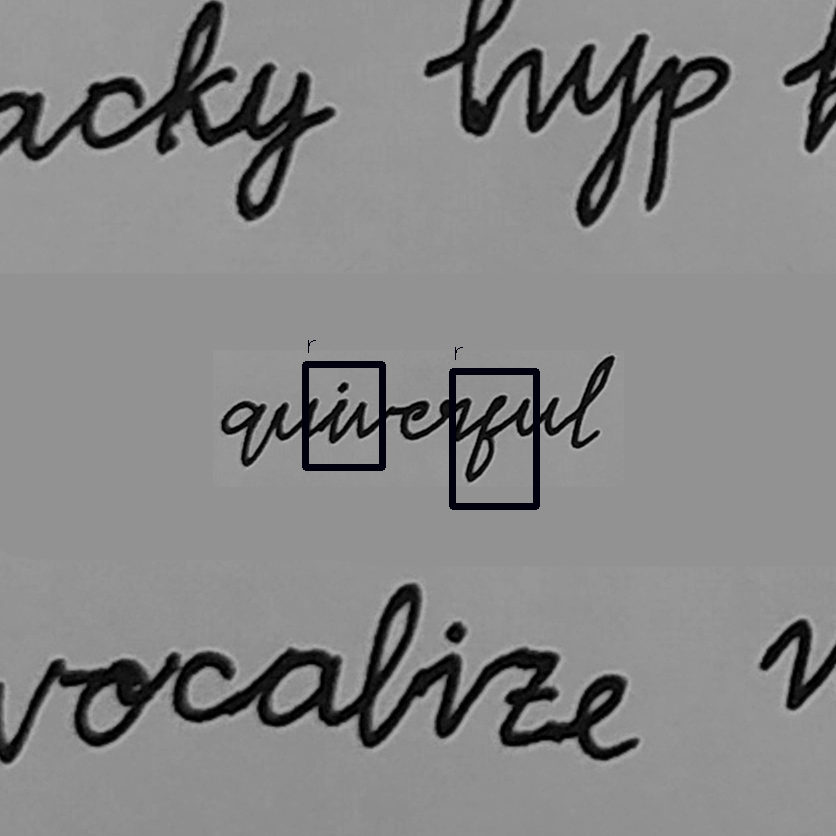 acky hyp
r r
quiverful
vocalize